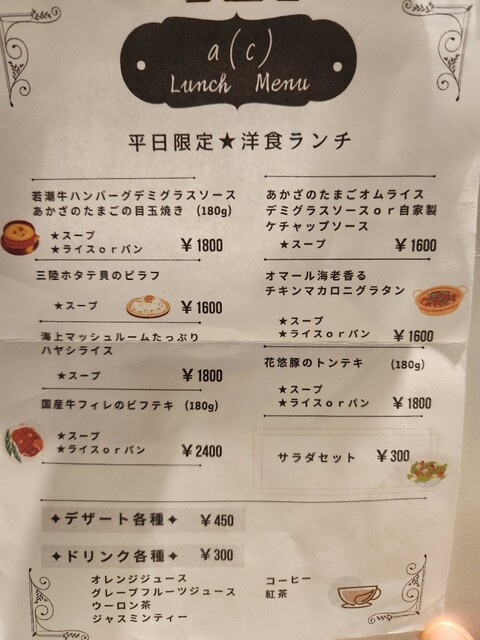 a(c)
Lunch Menu
平日限定★洋食ランチ
若潮牛ハンバーグデミグラスソース
あかざのたまごの目玉焼き (180g)
★スープ
★ライスorパン ¥1800
三陸ホタテ貝のピラフ
★スープ ¥1600
海上マッシュルームたっぷり
ハヤシライス
★スープ ¥1800
国産牛フィレのビフテキ (180g)
★スープ
★ライスorパン ¥2400
あかざのたまごオムライス
デミグラスソースor自家製
ケチャップソース
★スープ ¥1600
オマール海老香る
チキンマカロニグラタン
★スープ
★ライスorパン ¥1600
花悠豚のトンテキ (180g)
★スープ
★ライスorパン ¥1800
サラダセット ¥300
✦デザート各種✦ ¥450
✦ドリンク各種✦ ¥300
オレンジジュース
グレープフルーツジュース
ウーロン茶
ジャスミンティー
コーヒー
紅茶